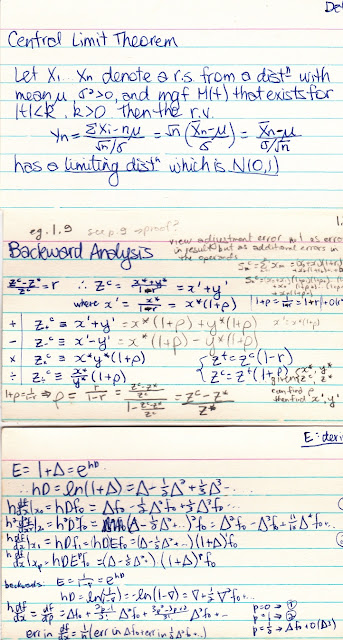 Central Limit Theorem
Let X₁.. Xn denote a r.s. from a distⁿ with
mean μ σ²>0, and mgf M(t) that exists for
|t|<k, k>0. Then the r.v.
Yn = ΣXi-nμ / √n/σ = √n (X̄n-μ / σ) = X̄n-μ / σ/√n
has a limiting distⁿ which is N(0,1)
eg. 1.9 see p.9 → proof?
Backward Analysis
view adjustment error not as error
in result but as additional errors in
the operands
zᶜ-z* / zᶜ = r ∴ zᶜ = x*+y* / 1-r = x'+y'
where x' = x* / 1-r = x*(1+ρ)
+ z₊ᶜ ≡ x'+y' = x*(1+ρ) + y*(1+ρ)
- z₋ᶜ ≡ x'-y' = x*(1+ρ) - y*(1+ρ)
× zₓᶜ ≡ x*y*(1+ρ)
÷ z÷ᶜ ≡ x*/y* (1+ρ)
{ z* = zᶜ(1-r)
{ zᶜ = z*(1+ρ)
given x*, y*
zᶜ, z*
can find ρ
then find x', y'
1+ρ = 1/1-r ⇒ ρ = r / 1-r = zᶜ-z* / zᶜ / 1 - zᶜ-z* / zᶜ = zᶜ-z* / z*
E = 1+Δ = eʰᴰ
∴ hD = ln(1+Δ) = Δ - ½Δ² + ⅓Δ³ ...
h df/dx|x₀ = hDf₀ = Δf₀ - ½Δ²f₀ + ⅓Δ³f₀ ...
h² d²f/dx²|x₀ = h²D²f₀ = (Δ - ½Δ² + ...)² f₀ = Δ²f₀ - Δ³f₀ + 11/12 Δ⁴f₀ ...
h df/dx|x₁ = hDf₁ = (hD)Ef₀ = (Δ - ½Δ² + ...)(1+Δ)f₀
h df/dx|xp = hDEᵖf₀ = (Δ - ½Δ² + ...)(1+Δ)ᵖf₀
backwards: E = 1/1-∇ = eʰᴰ
hD = ln(1/1-∇) = -ln(1-∇) = ∇ + ½∇²f₀ ...
h df/dx = df/dp = Δf₀ + 2p-1/2! Δ²f₀ + 3p²-6p+2/3! Δ³f₀ + ...
p=0 → ①
p=1 → ②
p=½ → Δf₀ + 0(Δ³)